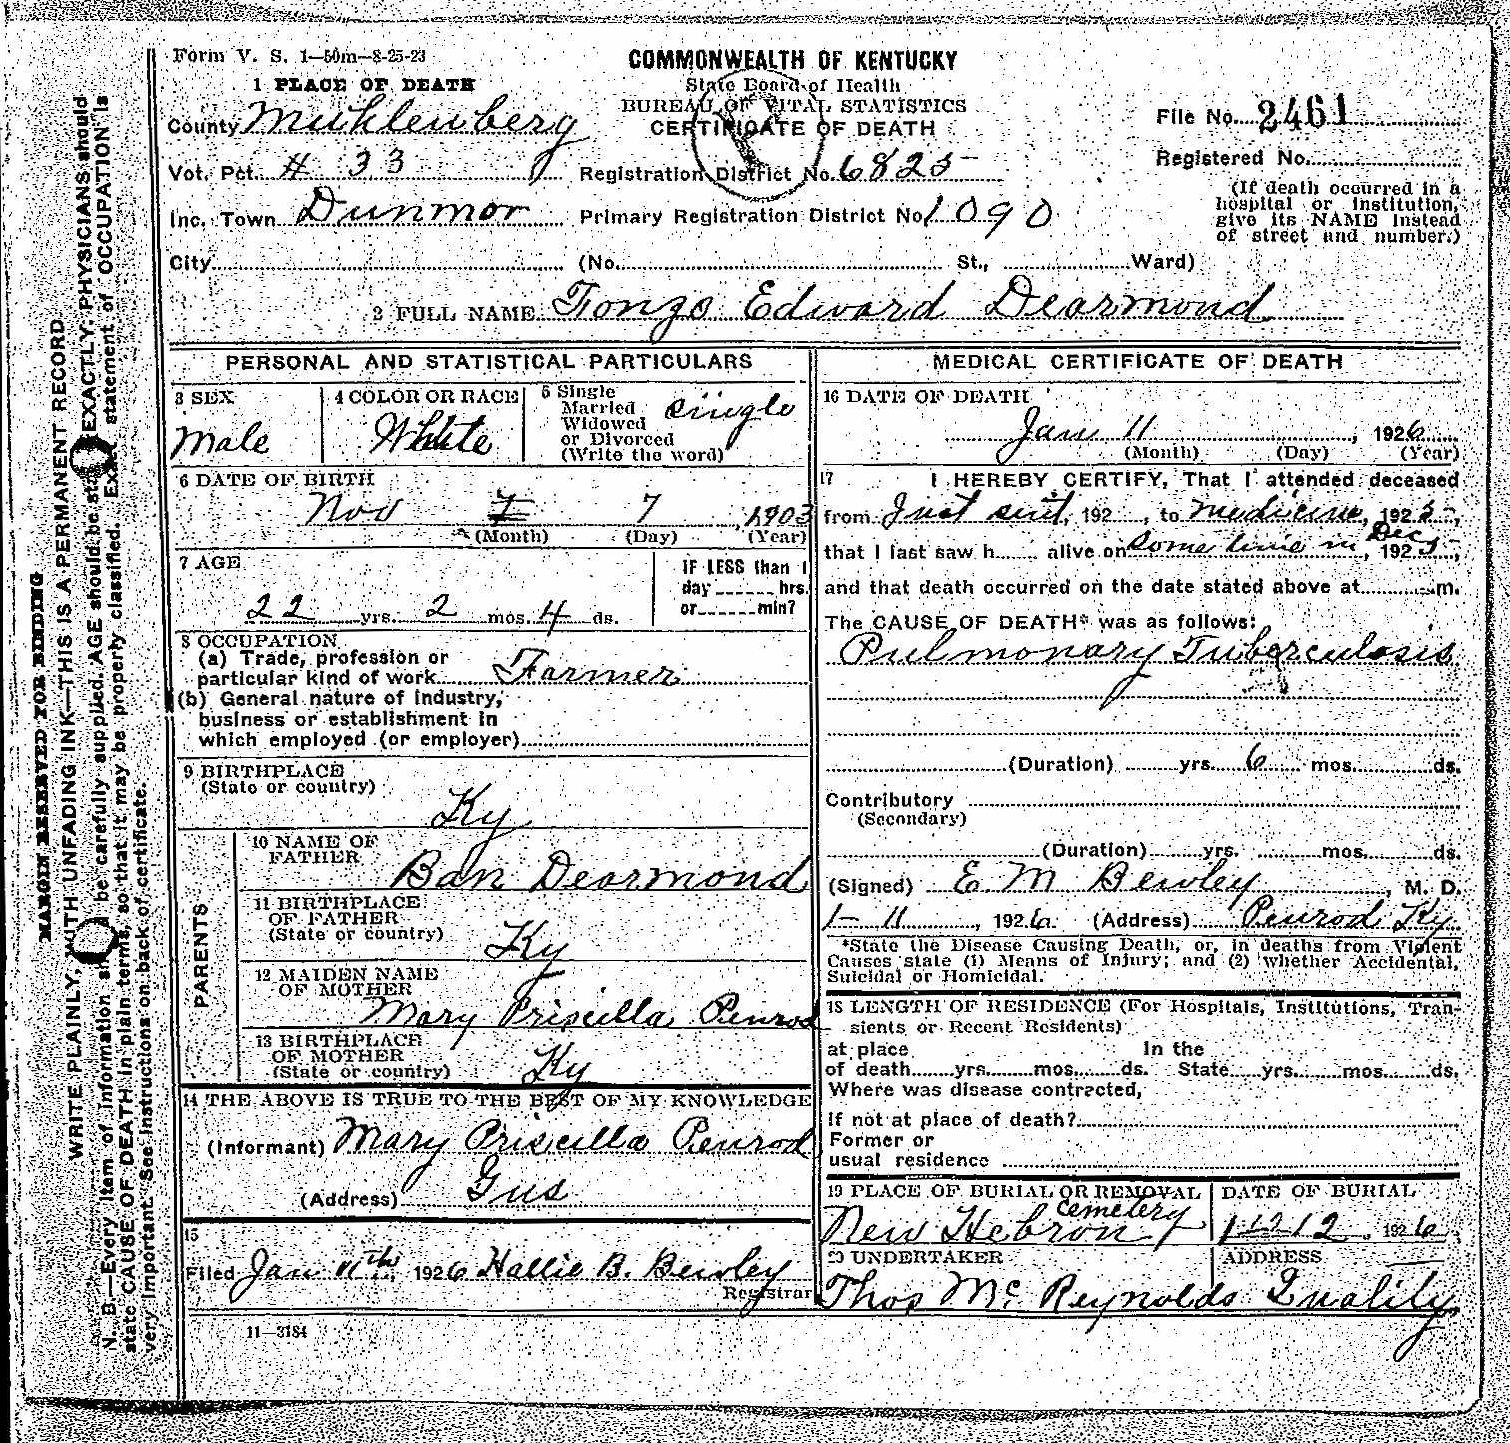 Form V. S. 1—50m—8-25-23
COMMONWEALTH OF KENTUCKY
State Board of Health
BUREAU OF VITAL STATISTICS
CERTIFICATE OF DEATH
File No. 2461
Registered No.
(If death occurred in a
hospital or institution,
give its NAME instead
of street and number.)
1 PLACE OF DEATH
County Muhlenberg
Vot. Pct. # 33 Registration District No. 6825
Inc. Town Dunmor Primary Registration District No. 1090
City (No. St., Ward)
2 FULL NAME Fonzo Edward Dearmond
PERSONAL AND STATISTICAL PARTICULARS
3 SEX
Male
4 COLOR OR RACE
White
5 Single
Married
Widowed
or Divorced
(Write the word)
Single
6 DATE OF BIRTH
Nov 7 7, 1903
(Month) (Day) (Year)
7 AGE
22 yrs. 2 mos. 4 ds.
IF LESS than 1
day hrs.
or min?
8 OCCUPATION
(a) Trade, profession or
particular kind of work Farmer
(b) General nature of industry,
business or establishment in
which employed (or employer)
9 BIRTHPLACE
(State or country)
Ky
PARENTS
10 NAME OF
FATHER
Ban Dearmond
11 BIRTHPLACE
OF FATHER
(State or country)
Ky
12 MAIDEN NAME
OF MOTHER
Mary Priscilla Penrod
13 BIRTHPLACE
OF MOTHER
(State or country)
Ky
14 THE ABOVE IS TRUE TO THE BEST OF MY KNOWLEDGE
(Informant) Mary Priscilla Penrod
(Address) Gus
15
Filed Jan 11th, 1926 Hallie B. Bewley
Registrar
11—3184
MEDICAL CERTIFICATE OF DEATH
16 DATE OF DEATH
Jan 11, 1926
(Month) (Day) (Year)
17 I HEREBY CERTIFY, That I attended deceased
from Just sent, 192 , to medicine, 1925,
that I last saw h alive on some time in Dec, 1925,
and that death occurred on the date stated above at m.
The CAUSE OF DEATH* was as follows:
Pulmonary Tuberculosis
(Duration) yrs. 6 mos. ds.
Contributory
(Secondary)
(Duration) yrs. mos. ds.
(Signed) E M Bewley, M. D.
1-11, 1926 (Address) Penrod Ky.
*State the Disease Causing Death, or, in deaths from Violent
Causes state (1) Means of Injury; and (2) whether Accidental,
Suicidal or Homicidal.
18 LENGTH OF RESIDENCE (For Hospitals, Institutions, Tran-
sients or Recent Residents)
at place In the
of death yrs. mos. ds. State yrs. mos. ds.
Where was disease contracted,
If not at place of death?
Former or
usual residence
19 PLACE OF BURIAL OR REMOVAL
New Hebron Cemetery
DATE OF BURIAL
1-12, 1926
20 UNDERTAKER
ADDRESS
Thos McReynolds Quality
MARGIN RESERVED FOR BINDING
WRITE PLAINLY, WITH UNFADING INK—THIS IS A PERMANENT RECORD
N. B.—Every item of information be carefully supplied. AGE should be EXACTLY. PHYSICIANS should
state CAUSE OF DEATH in plain terms, so that it may be properly classified. statement of OCCUPATION is
very important. See instructions on back of certificate.